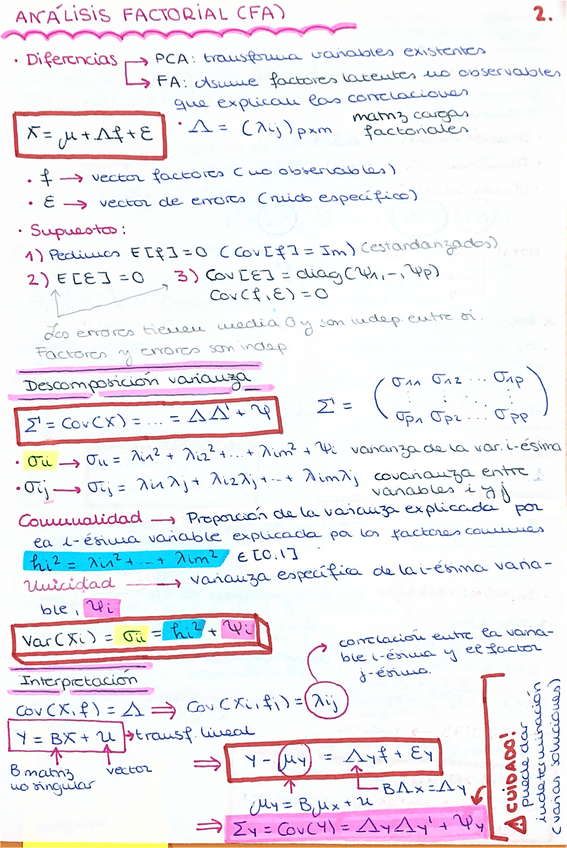 ANÁLISIS FACTORIAL (FA)
2.
· Diferencias → PCA: transforma variables existentes
→ FA: Asume factores latentes no observables
que explican las correlaciones
X = μ + Λf + ε
· Λ = (λij) pxm matriz cargas
factoriales
· f → vector factores (no observables)
· ε → vector de errores (ruido específico)
· Supuestos:
1) Pedimos E[f]=0 (Cov[f]=Im) (estandarizados)
2) E[ε]=0 3) Cov[ε]=diag(Ψ1,-,Ψp)
Cov(f,ε)=0
Los errores tienen media 0 y son indep entre sí.
Factores y errores son indep
Descomposición varianza
Σ = Cov(X) = ... = ΛΛ' + Ψ
Σ = ( σ11 σ12 ... σ1p
σp1 σp2 ... σpp )
· σii → σii = λi1² + λi2² + ... + λim² + Ψi varianza de la var. i-ésima
· σij → σij = λi1λj + λi2λj + ... + λimλj covarianza entre
variables i y j
Comunalidad → Proporción de la varianza explicada por
ea i-ésima variable explicada pa los factores comunes
hi² = λi1² + ... + λim² ∈ [0,1]
Unicidad → varianza específica de la i-ésima varia-
ble, Ψi
Var(Xi) = σii = hi² + Ψi
correlación entre la varia-
ble i-ésima y el factor
j-ésimo.
Interpretación
Cov(X,f) = Λ ⇒ Cov(Xi,fi) = λij
Y = BX + u → transf. lineal
B matriz
no singular
vector
⇒ Y - μy = Λyf + εy
BΛx = Λy
μy = Bμx + u
⇒ Σy = Cov(Y) = ΛyΛy' + Ψy
⚠ CUIDADO!
puede dar
indeterminación
(varias soluciones)